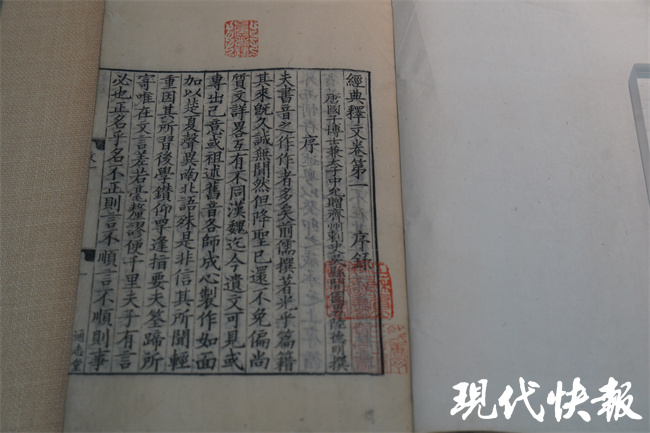 經典釋文卷第一 序錄
唐國子博士兼太子中允贈齊州刺史吳縣開國男陸德明撰
序
夫書音之作作者多矣前儒撰著光乎篇籍
其來旣久誠無閒然但降聖已還不免偏尚
質文詳畧互有不同漢魏迄今遺文可見或
專出己意或祖述舊音各師成心製作如面
加以楚夏聲異南北語殊是非信其所聞輕
重因其所習後學鑽仰罕逢指要夫筌蹄所
寄唯在文言差若毫釐謬便千里夫子有言
必也正名乎名不正則言不順言不順則事
通志堂
现代快報